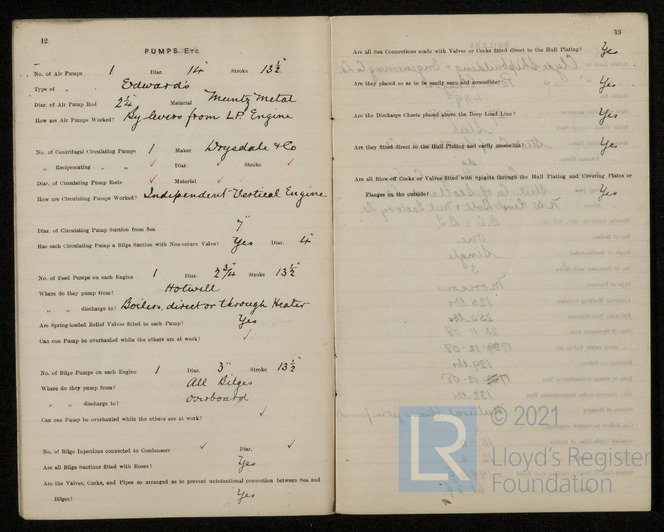 12
PUMPS, ETC
No. of Air Pumps 1 Diar. 14 Stroke 13½"
Type of " Edwards
Diar. of Air Pump Rod 2¼ Material Muntz Metal
How are Air Pumps Worked? By levers from L.P. Engine
No. of Centrifugal Circulating Pumps 1 Maker Drysdale & Co
" Reciprocating " " ✓ Diar. ✓ Stroke ✓
Diar. of Circulating Pump Rods ✓ Material ✓
How are Circulating Pumps Worked? Independent Vertical Engine
Diar. of Circulating Pump Suction from Sea 7"
Has each Circulating Pump a Bilge Suction with Non-return Valve? Yes Diar. 4"
No. of Feed Pumps on each Engine 1 Diar. 2¾" Stroke 13½"
Where do they pump from? Hotwell
" " discharge to? Boilers, direct or through Heater
Are Spring-loaded Relief Valves fitted to each Pump? Yes
Can one Pump be overhauled while the others are at work? ✓
No. of Bilge Pumps on each Engine 1 Diar. 3" Stroke 13½"
Where do they pump from? All Bilges
" " discharge to? Overboard
Can one Pump be overhauled while the others are at work? ✓
No. of Bilge Injections connected to Condensers ✓ Diar. ✓
Are all Bilge Suctions fitted with Roses? Yes
Are the Valves, Cocks, and Pipes so arranged as to prevent unintentional connection between Sea and
Bilges? Yes
13
Are all Sea Connections made with Valves or Cocks fitted direct to the Hull Plating? Yes
Are they placed so as to be easily seen and accessible? Yes
Are the Discharge Chests placed above the Deep Load Line? Yes
Are they fitted direct to the Hull Plating and easily accessible? Yes
Are all Blow-off Cocks or Valves fitted with Spigots through the Hull Plating and Covering Plates or
Flanges on the outside? Yes
© 2021
LR
Lloyd's Register
Foundation